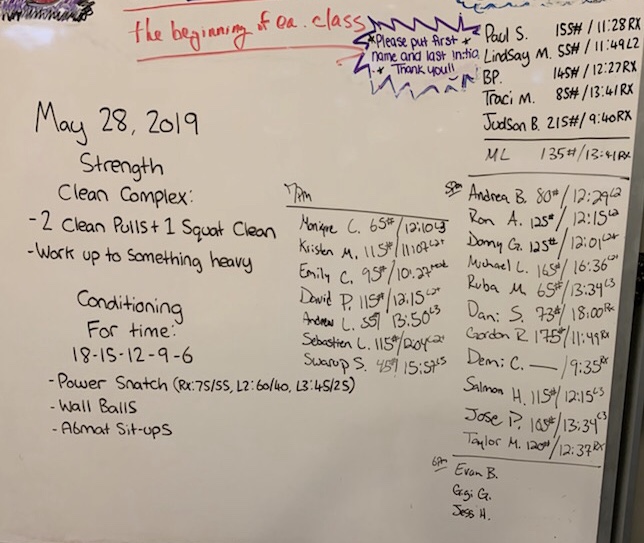 the beginning of ea. class
*Please put first *
name and last initial
* Thank you!!
May 28, 2019
Strength
Clean Complex:
- 2 Clean Pulls + 1 Squat Clean
- Work up to something heavy
Conditioning
For time:
18-15-12-9-6
- Power Snatch (Rx: 75/55, L2: 60/40, L3: 45/25)
- Wall Balls
- Abmat Sit-ups
7am
Monique C. 65# / 12:10 L3
Kristen M. 115# / 11:07 L2+
Emily C. 95# / 10:27
David P. 115# / 12:15 L2+
Andrew L. 55# 13:50 L3
Sebastien L. 115# / 12:04 L2+
Swarup S. 45# 15:57 L3
Paul S. 155# / 11:28 RX
Lindsay M. 55# / 11:49 L2
BP. 145# / 12:27 RX
Traci M. 85# / 13:41 RX
Judson B. 215# / 9:40 RX
ML 135# / 13:41 RX
5pm
Andrea B. 80# / 12:29 L2
Ron A. 125# / 12:15 L2
Danny G. 125# / 12:01 L2+
Michael L. 165# / 16:36 L2+
Ruba M. 65# / 13:34 L3
Dani S. 73# / 18:00 Rx
Gordon R 175# / 11:49 Rx
Demi C. — / 9:35 Rx
Salmon H. 115# / 12:15 L3
Jose P. 105# / 13:34 L3
Taylor M. 120# / 12:37 Rx
6pm
Evan B.
Gigi G.
Jess H.